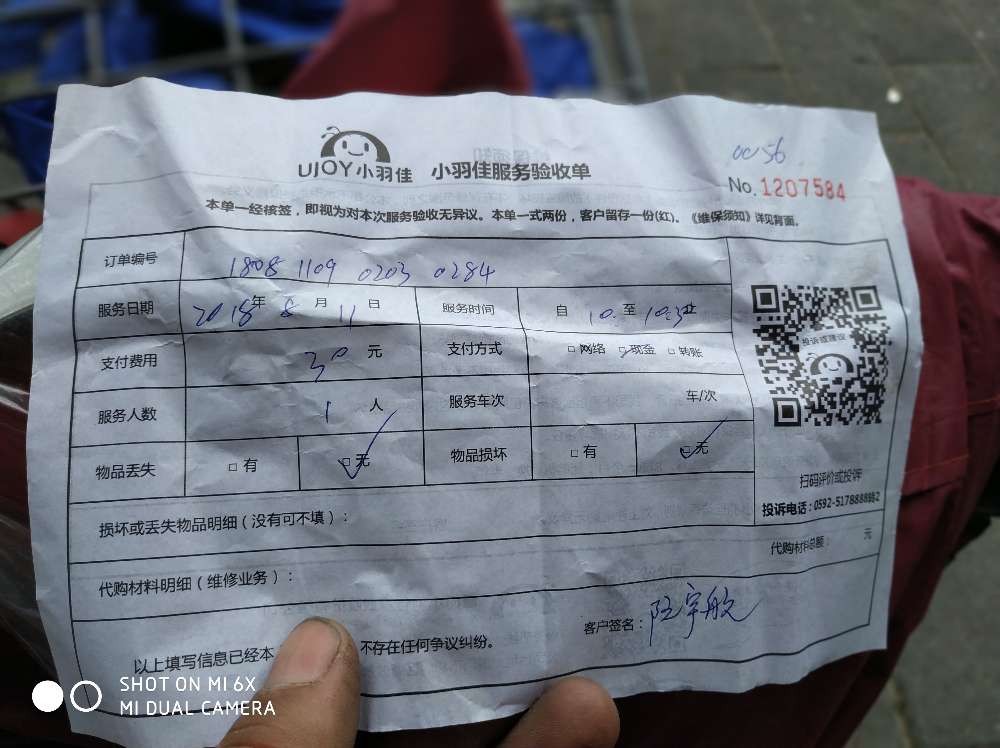 UJOY小羽佳 小羽佳服务验收单
0056
No. 1207584
本单一经核签，即视为对本次服务验收无异议。本单一式两份，客户留存一份(红)。《维保须知》详见背面。
订单编号 1808 1109 0203 0284
服务日期 2018年 8月 11日 服务时间 自 10: 至 10:30止
支付费用 30元 支付方式 □网络 □现金 □转账
服务人数 1人 服务车次 车/次
物品丢失 □有 □无 物品损坏 □有 □无
投诉或建议
扫码评价或投诉
投诉电话：0592-5178888
损坏或丢失物品明细（没有可不填）：
代购材料总额： 元
代购材料明细（维修业务）：
以上填写信息已经本 不存在任何争议纠纷。
客户签名：
SHOT ON MI 6X
MI DUAL CAMERA